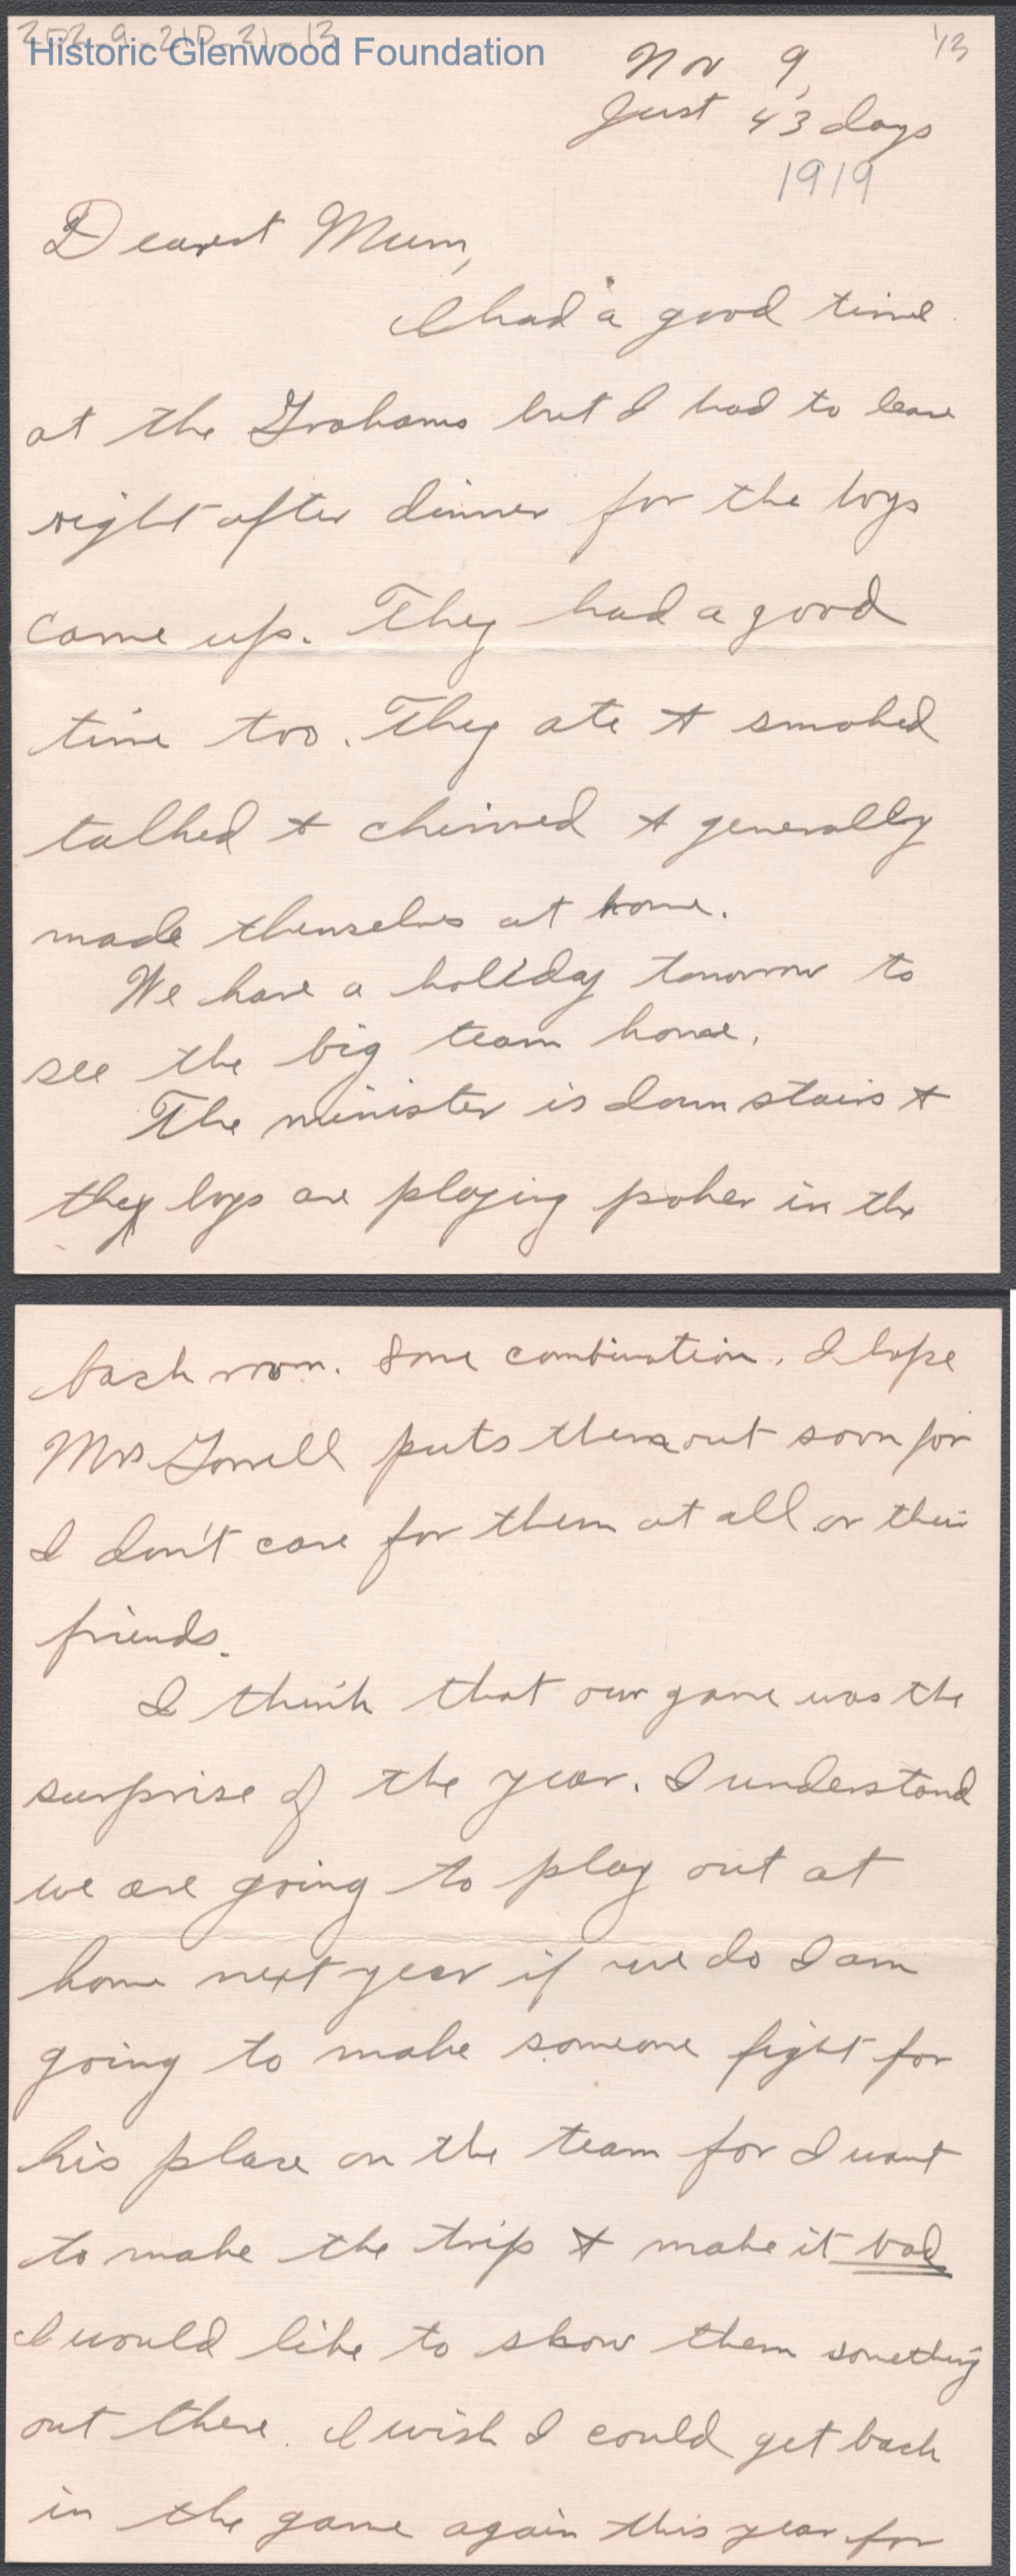 202-9-21D-21-13
Historic Glenwood Foundation
1/3
Nov 9,
Just 43 days
1919
Dearest Mum,
I had a good time
at the Grahams but I had to leave
right after dinner for the boys
came up. They had a good
time too. They ate + smoked
talked + chinned + generally
made themselves at home.
We have a holiday tomorrow to
see the big team home.
The minister is down stairs +
the boys are playing poker in the
back room. Some combination. I hope
Mrs puts them out soon for
I don't care for them at all or their
friends.
I think that our game was the
surprise of the year. I understand
we are going to play out at
home next year if we do I am
going to make someone fight for
his place on the team for I want
to make the trip + make it bad
I would like to show them something
out there. I wish I could get back
in the game again this year for